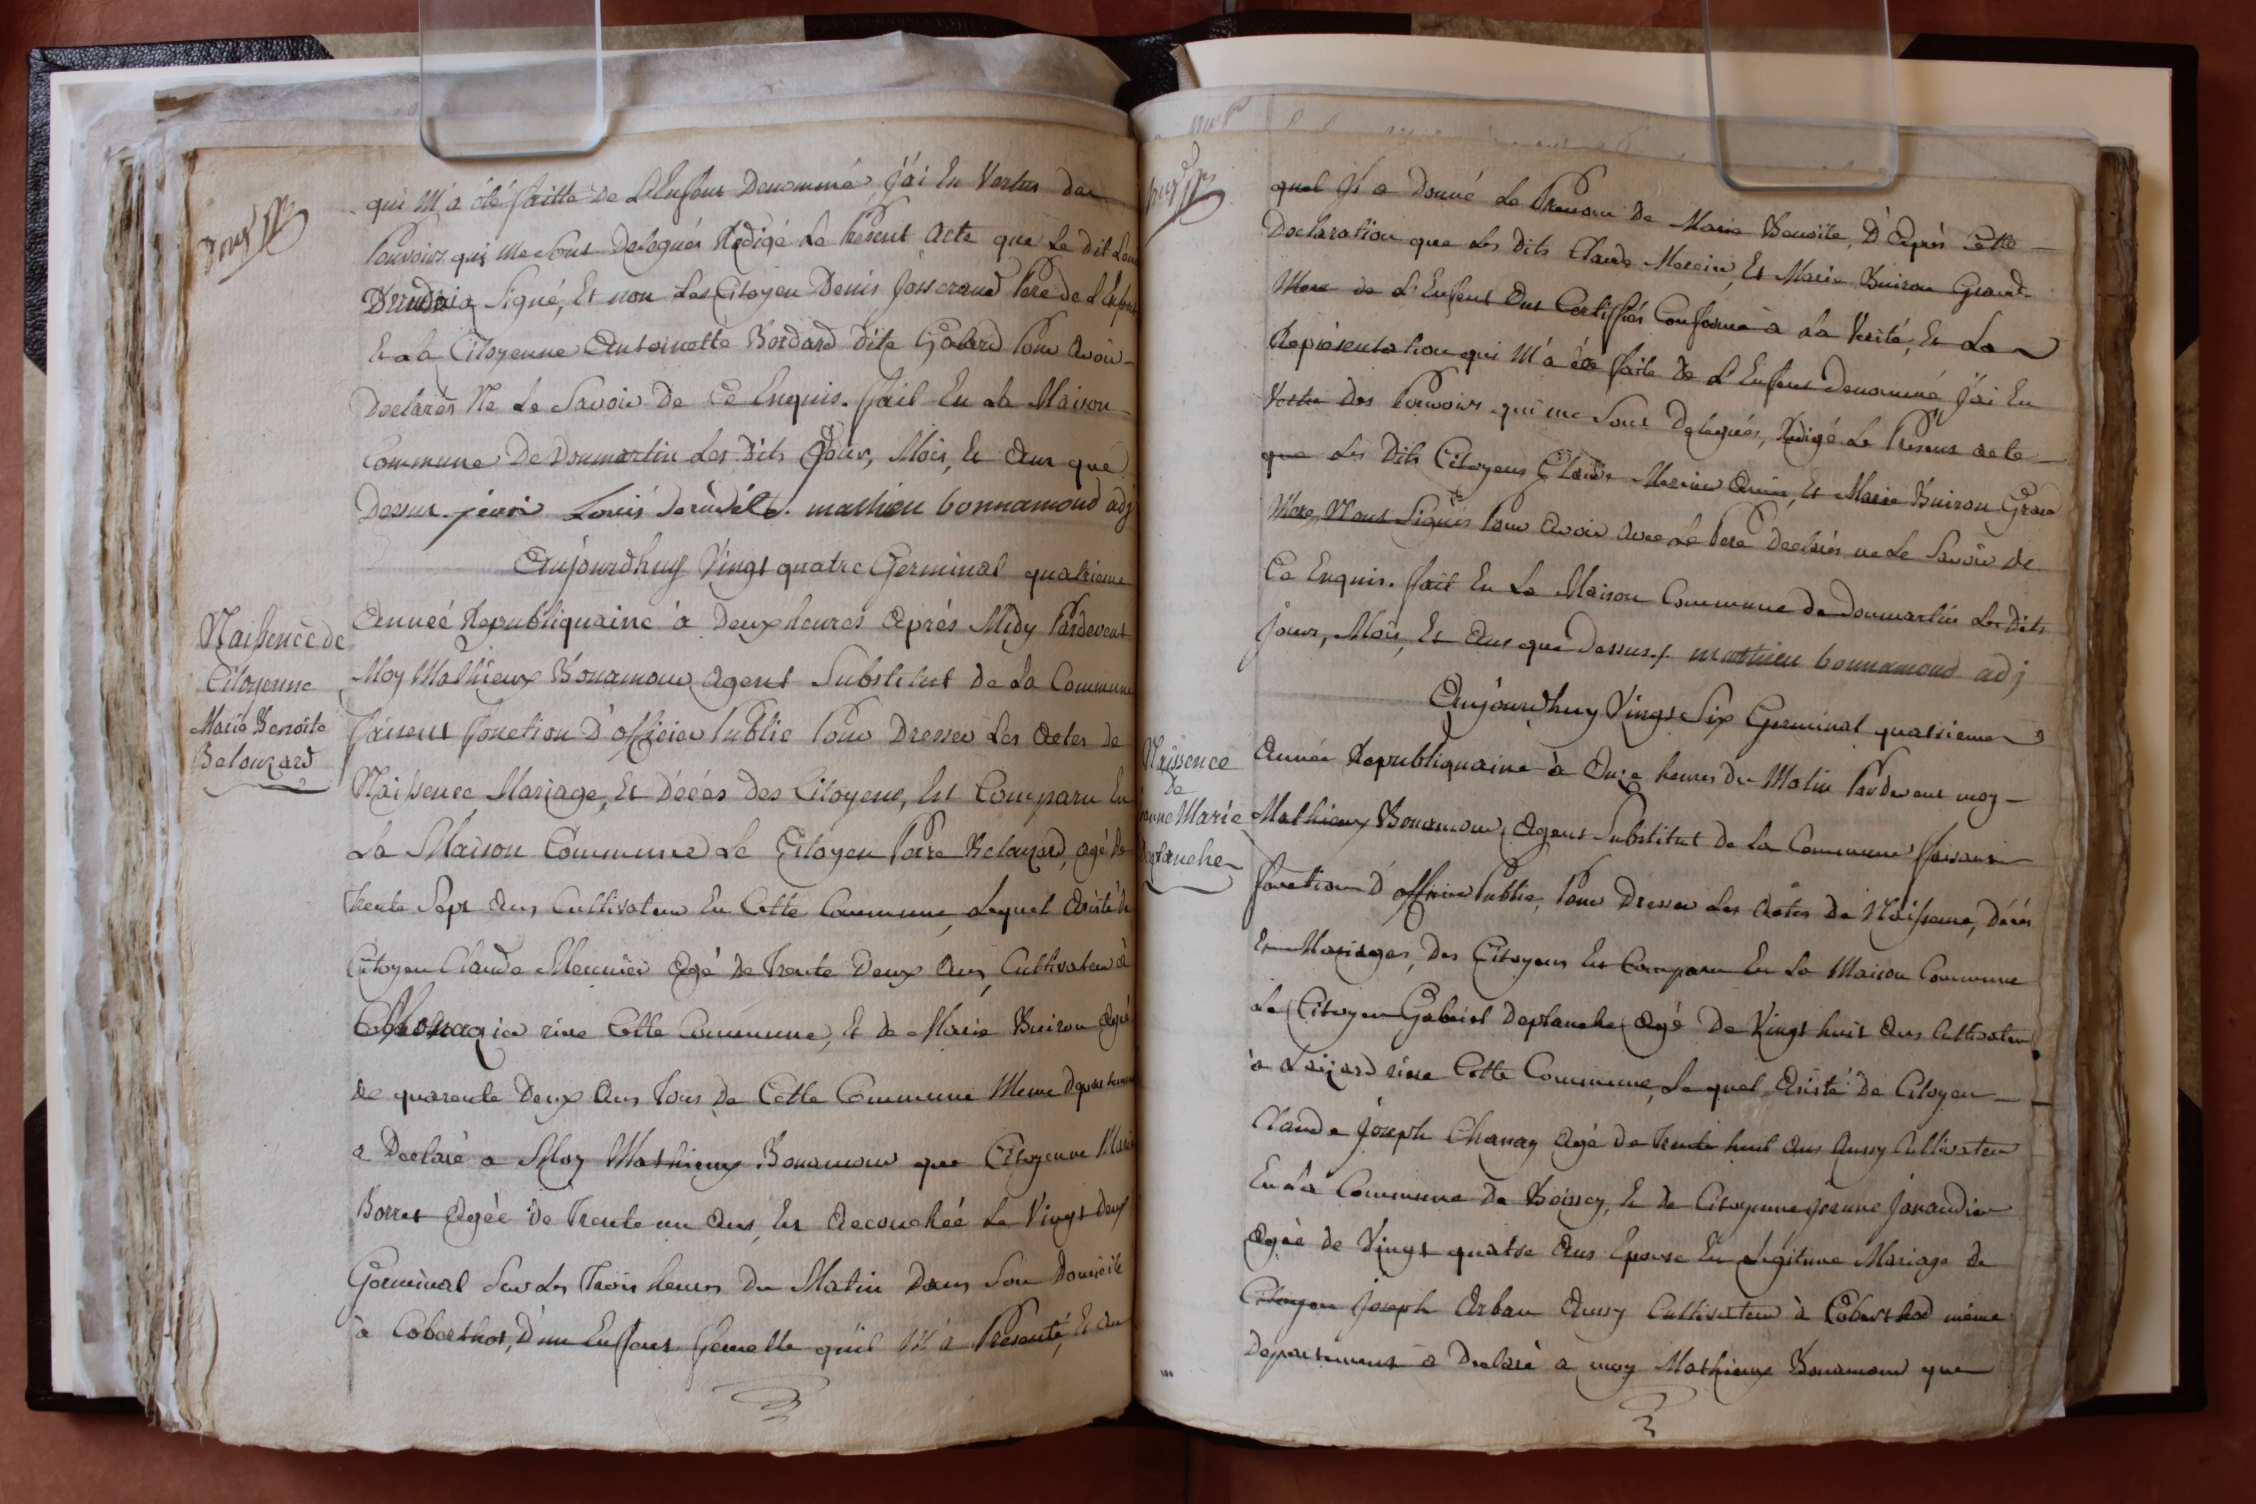 qui M'a été faitte de L'Enfant Denommé J'ai En Vertus des
Pouvoirs qui me Sont Delegués Redigé Le Present Acte que Le Dit
Signé, Et non Les Citoyen Denis Josserand Pere de L'Enfant
Et la Citoyenne Antoinette Bordard Dite Pour Avoir
Declarés Ne Le Savoir De Ce Enquis. fait En La Maison
Commune De Donmartin Les Dits Jour, Mois, Et Ans que
Dessus. Louis mathieu bonnamond adj
Aujourdhuy Vingt quatre Germinal quatrieme
Naissence de
Citoyenne
Marie Benoite
Belouzard
Année Republiquaine à Deux heures Aprés Midy Pardevent
Moy Mathieux Bonamour Agent Substitut De La Commune
faisent fonction D'officier Public Pour Dresser Les Actes de
Naissence Mariage, Et Décés Des Citoyens, Est Comparu En
La Maison Commune Le Citoyen agé de
trente Sept Ans Cultivateur En Cette Commune, Lequel Asisté de
Citoyen Claude Mercier Agé de Trente Deux Ans, Cultivateur à
riere Cette Commune, Et de Marie Buiron Agée
de quarente Deux Ans tous de Cette Commune Meme
a Declaré a Moy Mathieux Bonamour que Citoyenne Marie
Borret Agée De Trente un Ans, Est Acouchée Le Vingt Deux
Germinal Sur Les Trois heures Du Matin Dans Son Domicile
à Coberthot, D'un Enffant femelle qu'il M'a Presenté, Et au
quel Il a Donné Le Prenom De Marie Benoite, D'Aprés Cette
Declaration que Les Dits Claude Mercier, Et Marie Buiron Grand
Mere de L'Enfent Ont Certiffiés Conforme a La Verité, Et La
Representation qui M'a été faite De L'Enfent Denommé J'ai En
Vertu Des Pouvoirs qui me Sont Delegués, Redigé Le Present acte
que Les Dits Citoyens Claude Mercier Et Marie Buiron Grand
Mere, N'ont Signés Pour Avoir Avec Le Pere Declarés ne Le Savoir de
Ce Enquis. fait En La Maison Commune de Donmartin Les Dits
Jour, Mois, Et Ans que Dessus. mathieu bonnamond adj
Aujourdhuy Vingt Six Germinal quatrieme
Naissence
De
Jeanne Marie
Deplanche
Année Republiquaine à Onze heures Du Matin Pardevent moy
Mathieux Bonamour, Agent Substitut De La Commune faisant
fonction D'officier Public, Pour Dresser Les Actes De Naissence, Décés
Et Mariages, Des Citoyens Est Comparu En La Maison Commune
Le Citoyen Gabriel Deplanche Agé De Vingt huit Ans Cultivateur
à riere Cette Commune, Lequel Asisté De Citoyen
Claude Joseph Chanay Agé De Trente huit Ans Aussy Cultivateur
En La Commune De Boissey, Et De Citoyenne Jeanne Janaudier
Agée de Vingt quatre Ans Epouse En Legitime Mariage De
Citoyen Joseph Arban Aussy Cultivateur à Coberthod même
Departement a Declaré a moy Mathieux Bonamour que